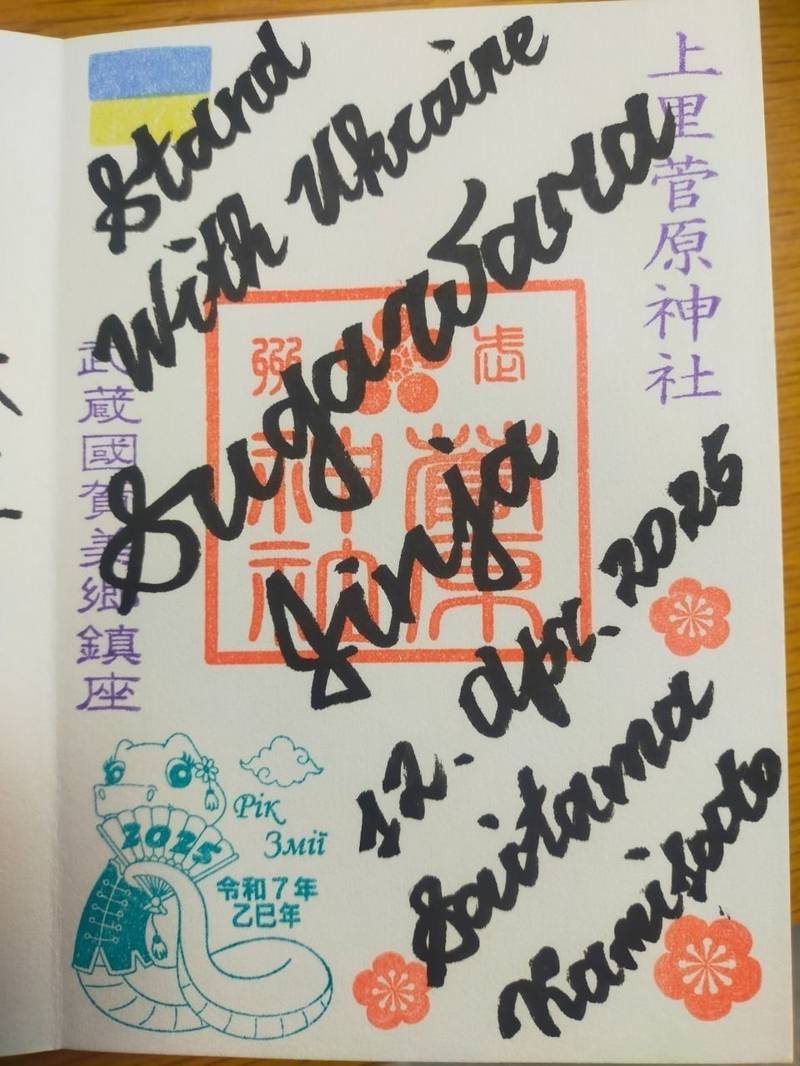 Stand
With Ukraine
Sugawara
Jinja
12. Apr. 2025
Saitama
Kamisato
上里菅原神社
武蔵國賀美郷鎮座
菅原
神社
2025
Рік
Змії
令和7年
乙巳年